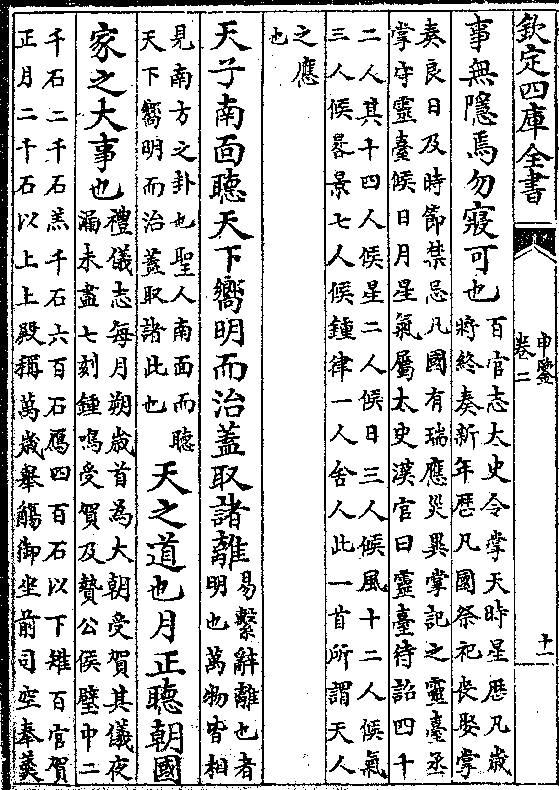 欽定四庫全書
申鑒
卷二
十一
事無隱焉勿寢可也
百官志太史令掌天時星歷凡歲
將終奏新年歷凡國祭祀喪娶掌
奏良日及時節禁忌凡國有瑞應災異掌記之靈臺丞
掌守靈臺候日月星氣屬太史漢官曰靈臺待詔四十
二人其十四人候星二人候日三人候風十二人候氣
三人候晷景七人候鍾律一人舍人此一首所謂天人
之應
也
天子南面聽天下嚮明而治蓋取諸離
易繫辭離也者
明也萬物皆相
見南方之卦也聖人南面而聽
天下嚮明而治蓋取諸此也
天之道也月正聽朝國
家之大事也
禮儀志每月朔歲首為大朝受賀其儀夜
漏未盡七刻鍾鳴受賀及贄公侯璧中二
千石二千石羔千石六百石鴈四百石以下雉百官賀
正月二千石以上上殿稱萬歲舉觴御坐前司空奉羹